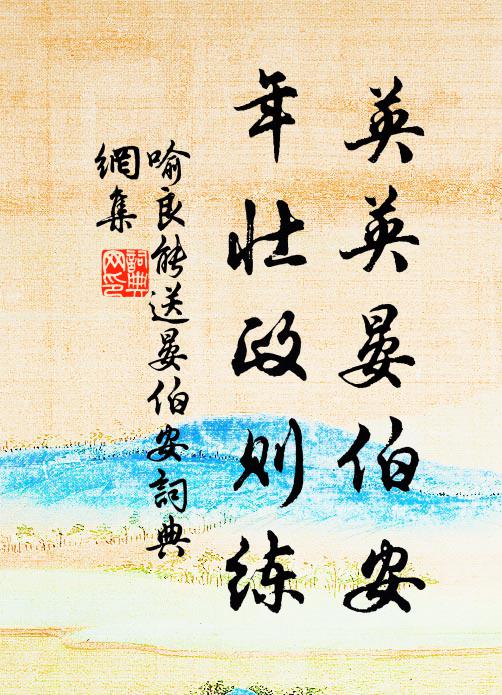 英英晏伯安
年壮政则练
喻良能送晏伯安詞典
網集
詞典
网印